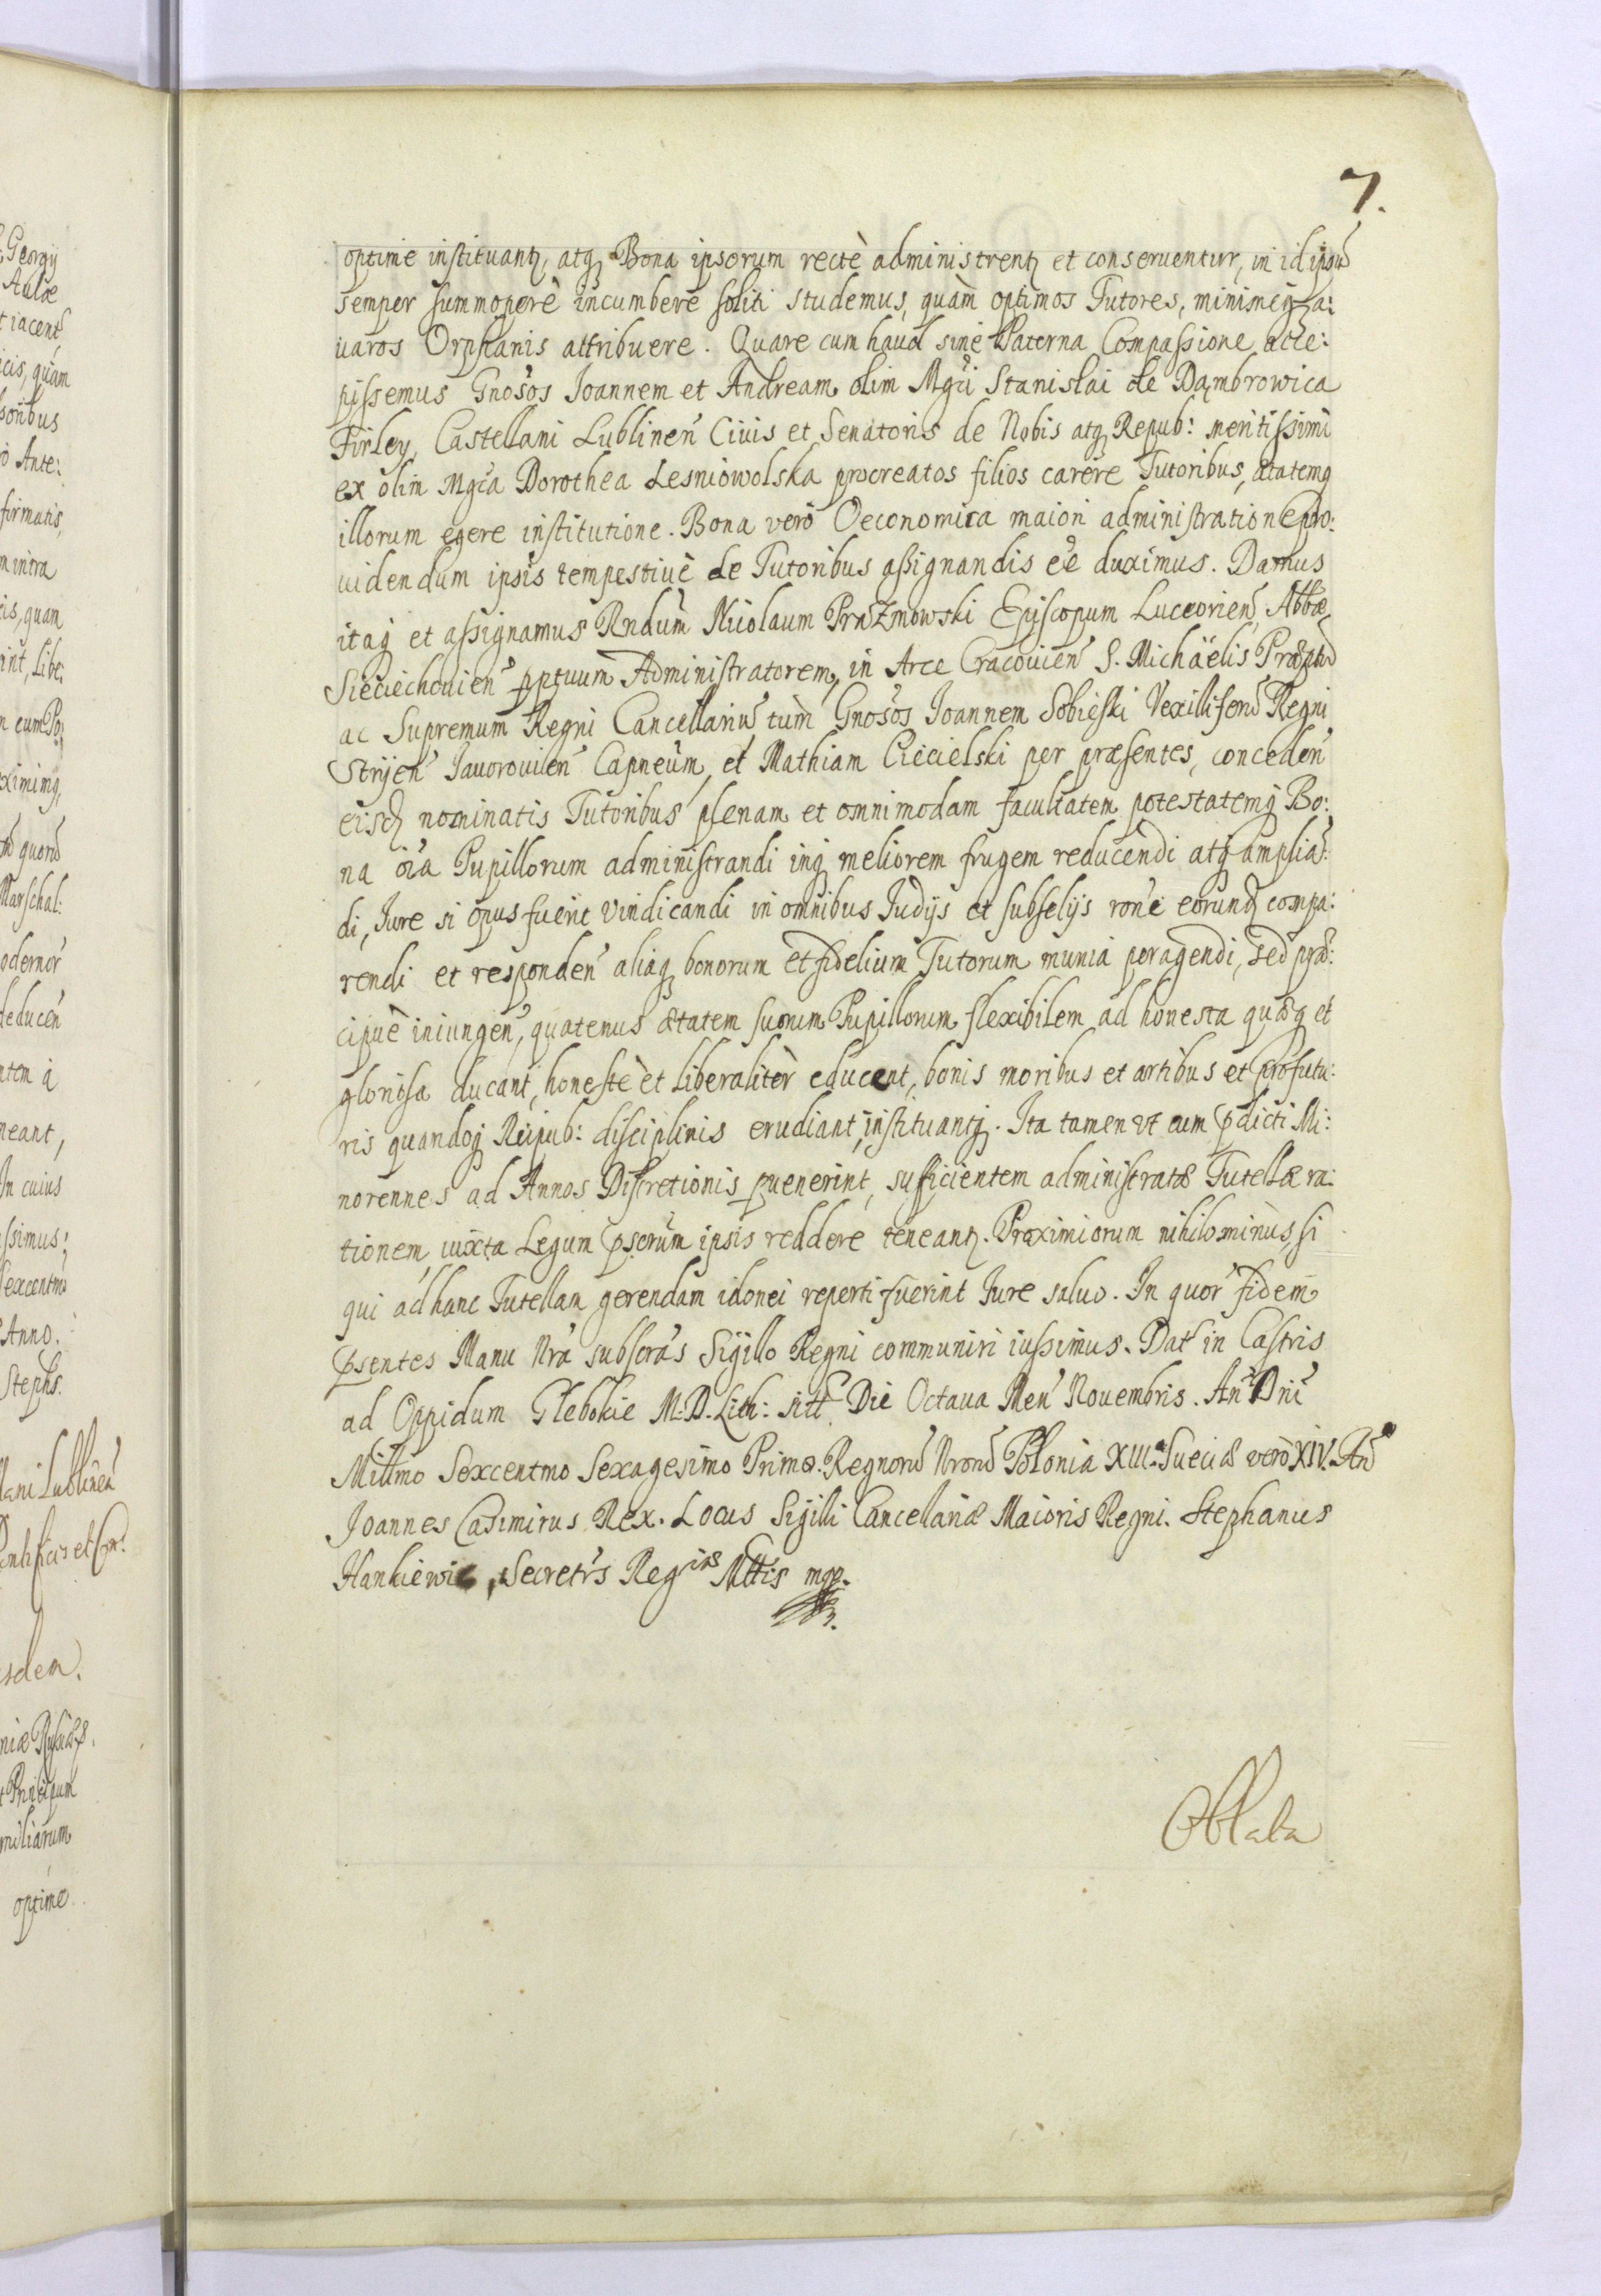 7.
optime instituantz, atqz Bona ipsorum rectè administrentz et conseruentur, in id ipsũ
semper summoperè incumbere soliti studemus, quàm optimos Tutores, minimeqz a:
uaros Orphanis attribuere. Quare cum haud sine Paterna Compassione acce:
pissemus Gnõsos Joannem et Andream olim Mgci Stanislai de Dąmbrowica
Firley, Castellani Lublinen̄ Ciuis et Senatoris de Nobis atqz Repub: meritissimi
ex olim Mgca Dorothea Lesniowolska procreatos filios carere Tutoribus, ætatemq
illorum egere institutione. Bona verò Oeconomica maiori administratione pro:
uidendum ipsis tempestiuè de Tutoribus assignandis ee᷃ duximus. Damus
itaq et assignamus Rndum Nicolaum Prażmowski Episcopum Luceorien̄, Abbãe
Sieciechouien̄ pptuum Administratorem, in Arce Cracouien̄ S. Michaëlis Præptũ
ac Supremum Regni Cancellariũ, tùm Gnõsos Joannem Sobieski Vexilliferũ Regni
Stryien̄ Jauorouien̄ Capneum, et Mathiam Ciecielski per præsentes, conceden̄
eisdz nominatis Tutoribus plenam et omnimodam facultatem potestatemq Bo:
na õia Pupillorum administrandi inq meliorem frugem reducendi atqz amplia᷃:
di, Jure si opus fuerit vindicandi in omnibus Judijs et subselijs rõne eorundz compa:
rendi et responden̄ aliaqz bonorum et fidelium Tutorum munia peragendi, sed præ:
cipuè iniungen̄, quatenus ætatem suorum Pupillorum flexibilem ad honesta quæq et
gloriosa ducant, honestè et liberalitèr educent, bonis moribus et artibus et profutu:
ris quandoq Reipub: disciplinis erudiant, instituantq. Ita tamen vt cum pdicti Mi:
norennes ad Annos Discretionis puenerint, sufficientem administratæ Tutellæ ra:
tionem, iuxta Legum pscrũm ipsis reddere teneantz. Proximiorum nihilominùs, si
qui ad hanc Tutellam gerendam idonei reperti fuerint Jure saluo. In quor̃ fidem
psentes Manu Nrã subscrãs Sigillo Regni communiri iussimus. Dat̃ in Castris
ad Oppidum Głebokie M.D.Lith: sitt̃ Die Octaua Men̄ Nouembris. An̄ Dni̅
Millmo Sexcentmo Sexagesimo Primo. Regnorũ Nrorũ Poloniæ XIII. Sueciæ verò XIV. An̄o
Joannes Casimirus Rex. Locus Sigilli Cancelariæ Maioris Regni. Stephanus
Hankiewic, Secretrs Regiæ Mttis mpp.
Oblata